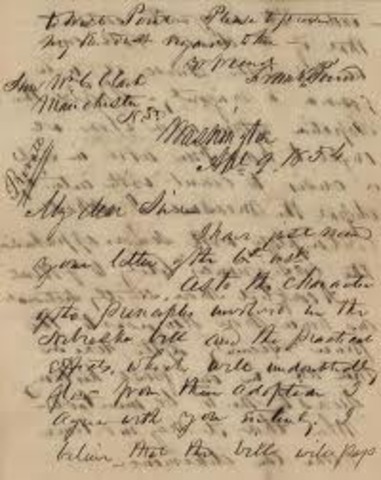 to
Please to present
my kindest regards to
Yr friend
Hon. W. C. Clark
Manchester
N. H.
Private
Washington
Apl 9. 1854
My dear Sir
I have just recd
your letter of the 6th inst
As to the character
of the principles involved in the
Nebraska bill and the practical
effects, which will undoubtedly
flow from their adoption I
agree with you entirely. I
believe that the bill will pass